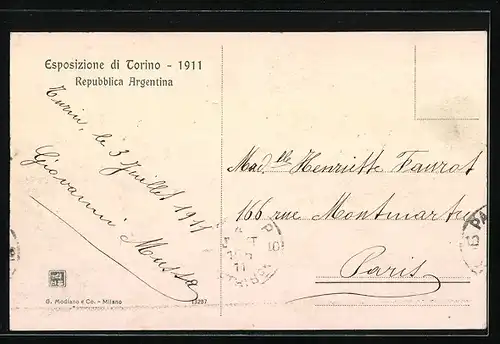 Esposizione di Torino - 1911
Repubblica Argentina
Turin, le 3 Juillet 1911
Giovanni Mussa
Mad.lle Henriette Faurot
166 rue Montmartre
Paris
G. Modiano e Co. - Milano
13207
PA